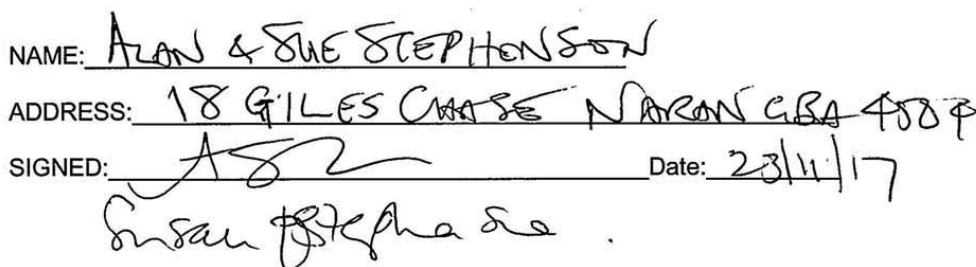 NAME: ALAN & SUE STEPHENSON
ADDRESS: 18 GILES CHASE NARANGBA
SIGNED: Date: 23/11/17
Susan